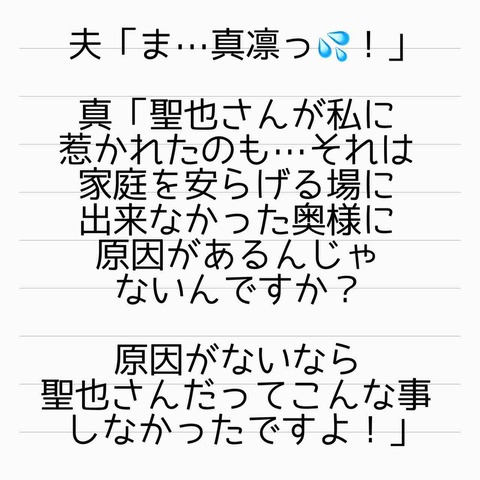 夫「ま…真凛っ💦！」
真「聖也さんが私に
惹かれたのも…それは
家庭を安らげる場に
出来なかった奥様に
原因があるんじゃ
ないんですか？
原因がないなら
聖也さんだってこんな事
しなかったですよ！」